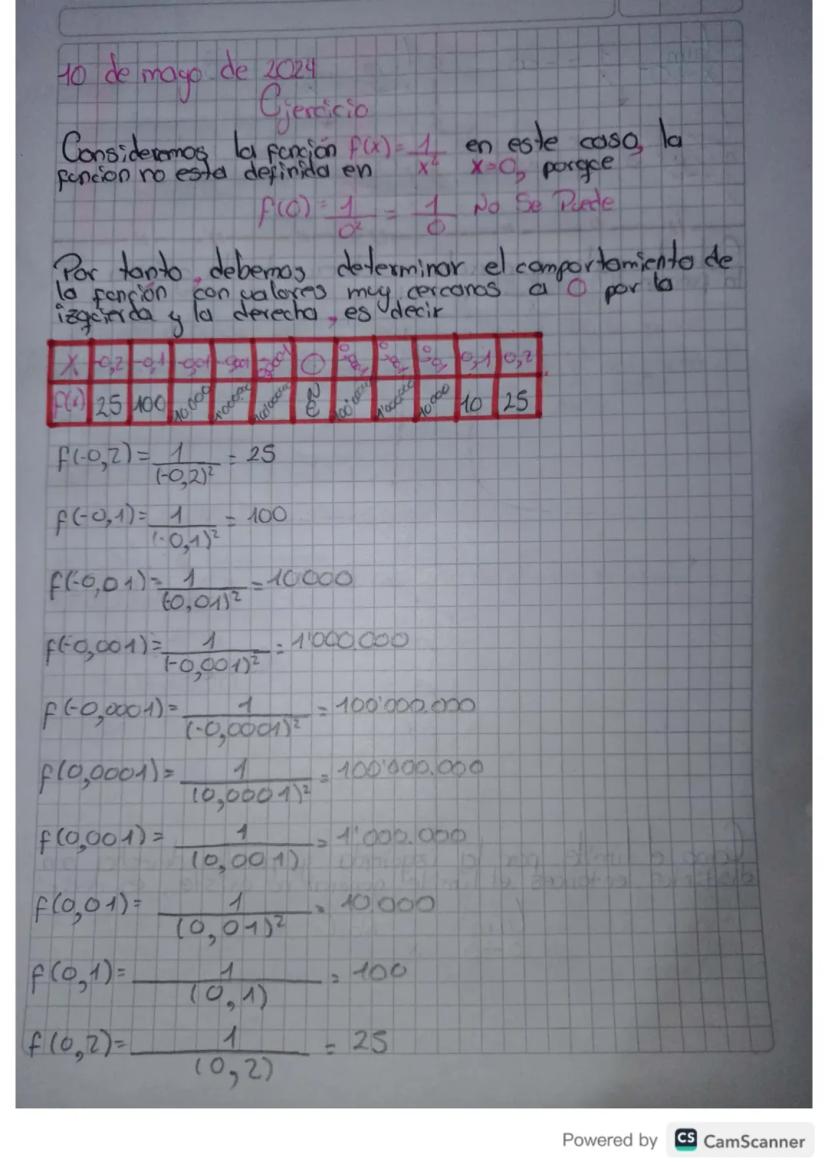 10 de mayo de 2024
Ejercicio
Consideremos la función f(x)= 1/x² en este caso, la
función no esta definida en x=0, porque
f(0)= 1/0² = 1/0 No Se Puede
Por tanto, debemos determinar el comportamiento de
la función con valores muy cercanos a 0 por la
izquierda y la derecha, es decir
X -0,2 -0,1 -0,01 -0,001 -0,0001 0 0,0001 0,001 0,01 0,1 0,2
f(x) 25 100 10000 1'000.000 100'000.000 100'000.000 1'000.000 10000 10 25
f(-0,2)= 1/(-0,2)² = 25
f(-0,1)= 1/(-0,1)² = 100
f(-0,01)= 1/(-0,01)² = 10000
f(-0,001)= 1/(-0,001)² = 1'000.000
f(-0,0001)= 1/(-0,0001)² = 100'000.000
f(0,0001)= 1/(0,0001)² = 100'000.000
f(0,001)= 1/(0,001) = 1'000.000
f(0,01)= 1/(0,01)² = 10000
f(0,1)= 1/(0,1) = 100
f(0,2)= 1/(0,2) = 25
Powered by CS CamScanner